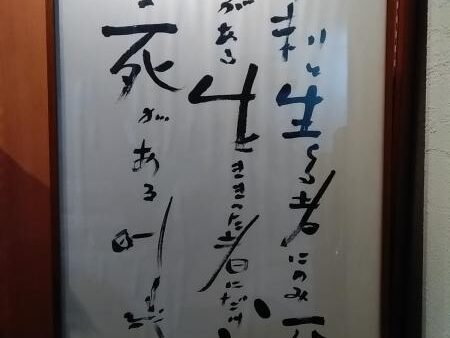 生くる者にのみ
がある生ききった者にだけ
死がある